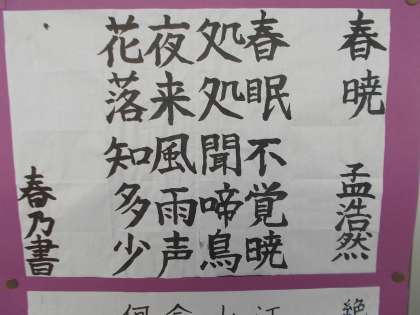 春暁 孟浩然
春眠不覚暁
処処聞啼鳥
夜来風雨声
花落知多少
春乃書
絶